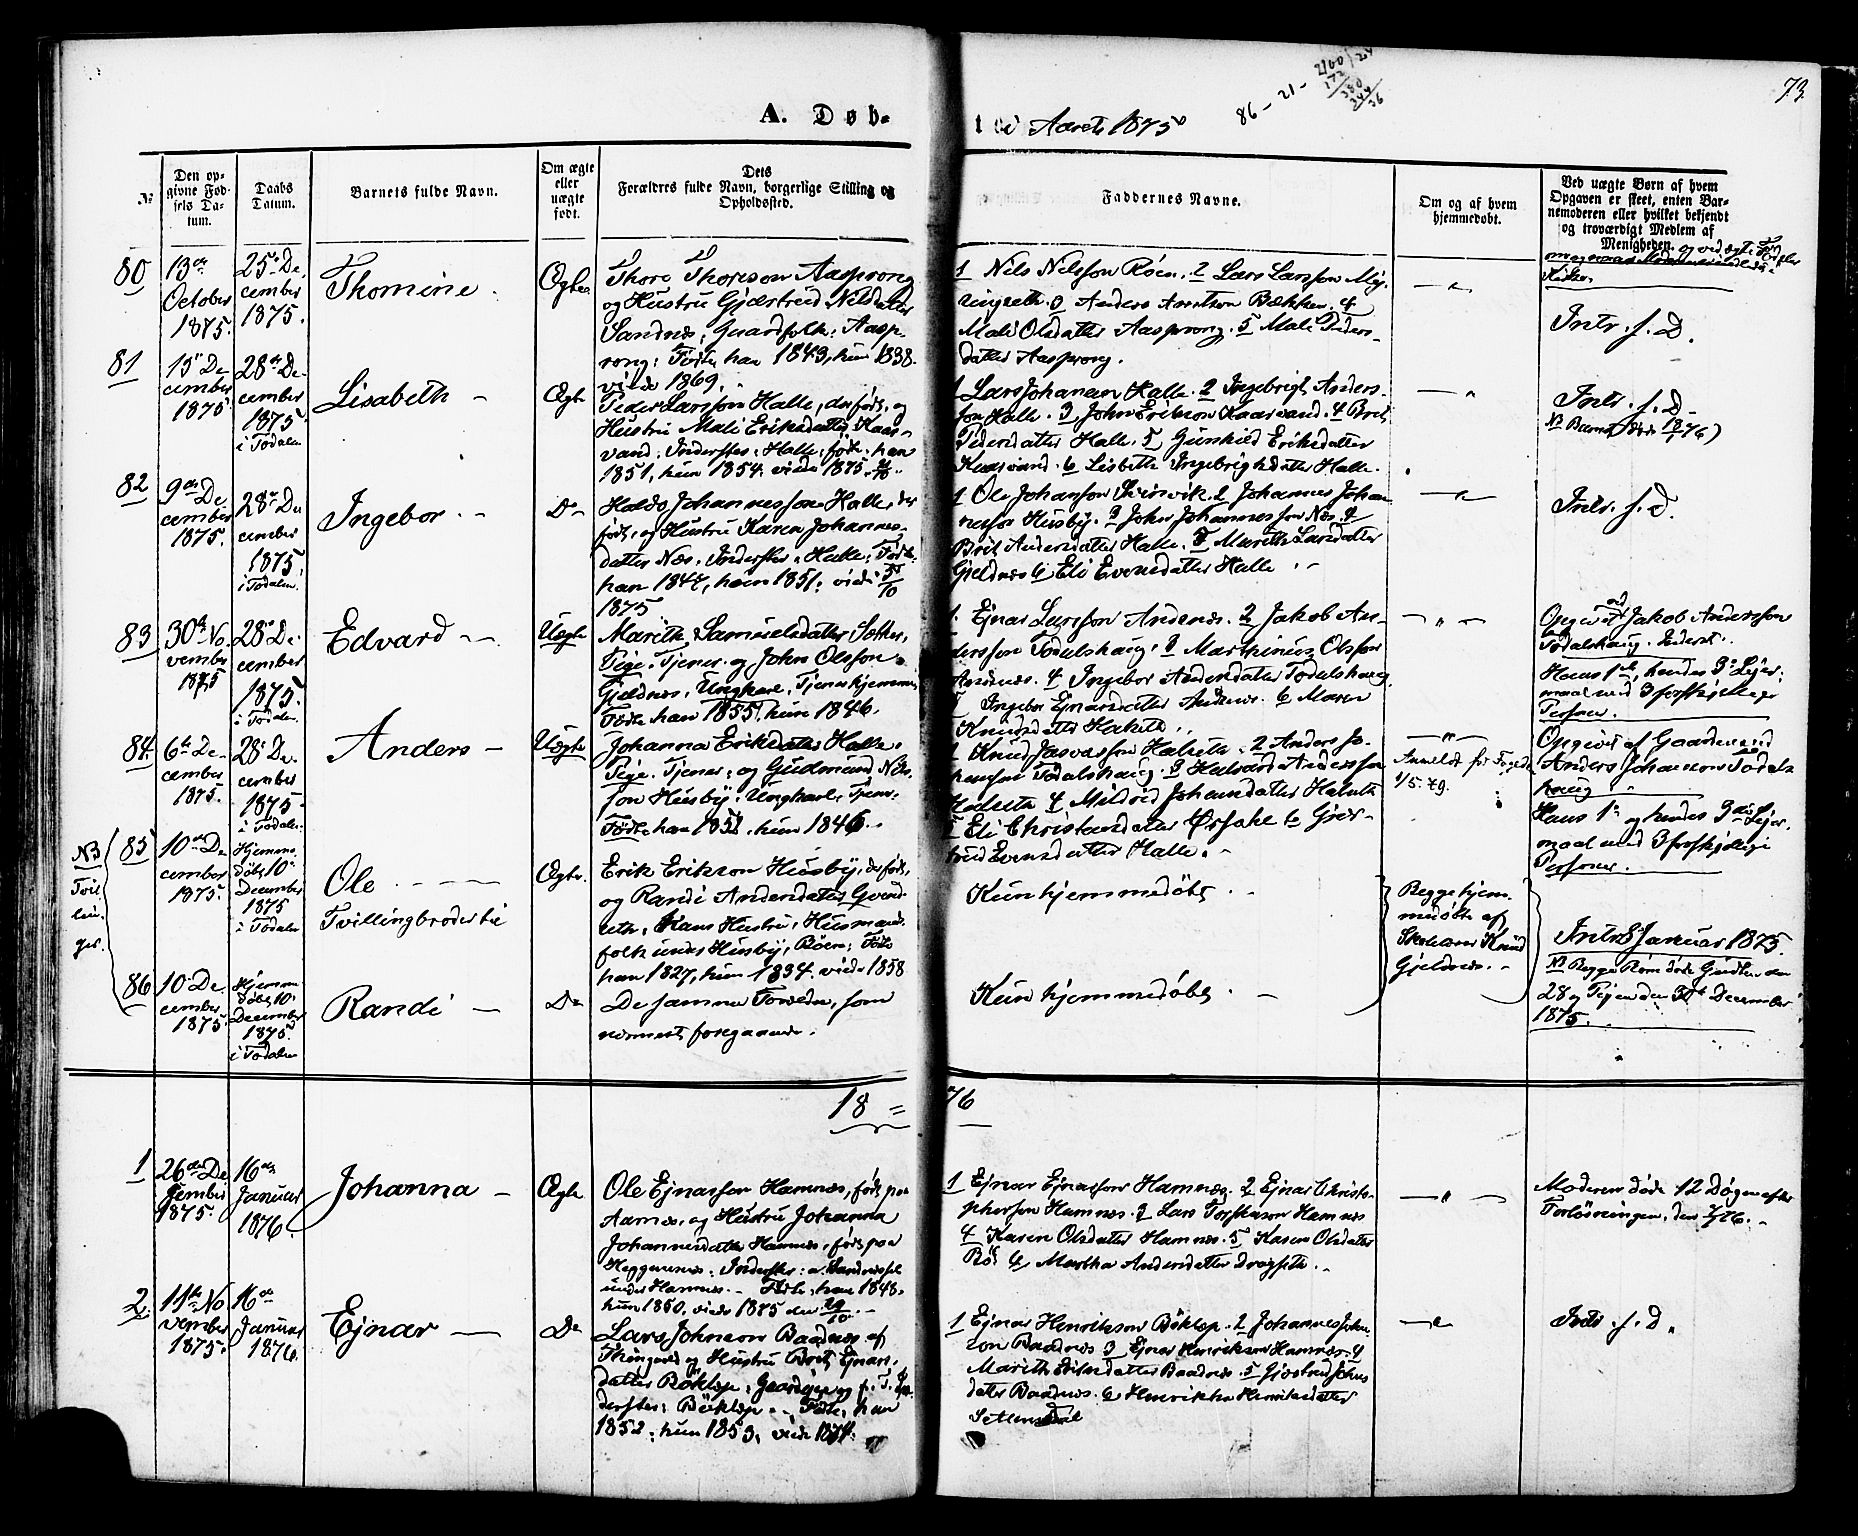 A. Døb-
t i Aaret 1875
73
86 - 12 -
No
Den op-
givne Fød-
sels Da-
tum.
Daabs
Datum.
Barnets fulde Navn.
Om ægte
eller
uægte
født.
Dets
Forældres fulde Navn, borgerlige Stilling og
Opholdssted.
Faddernes Navne.
Om og af hvem
hjemmedøbt.
Ved uægte Børn af hvem
Opgaven er skeet, enten Bar-
nemoderen eller hvilket bekjendt
og troværdigt Medlem af
Menigheden.
80
13de
October
1875.
25de De-
cember
1875.
Thomine.
Ægte
Thore Thoreson Aasprong
og Hustru Gjærtrud Nilsdatter
Sandnæs, Gaardfolk: Aasp-
rong: Fødte han 1843, hun 1838.
viede 1869.
1 Nils Nilsson Røen. 2 Lars Larsson My-
3 Anders Bækken. 4
Mali Olsdatter Aasprong. 5 Mali Peders-
datter Aasprong.
Intr. f. D.
81
15de De-
cember
1875.
28de De-
cember
1875.
i Todalen
Lisabeth -
Ægte
Peder Larsson Halle, der født, og
Hustru Mali Eriksdatter Kaar-
vand. Inderster: Halle: fødte: han
1851, hun 1854. viede 1875
1 Lars Johansen Halle. 2 Ingebrigt Anders-
son Halle. 3 John Erikson Kaarvand. 4 Brit
Pedersdatter Halle. 5 Gunhild Eriksdatter
Kaarvand. 6 Lisbeth Ingebrigtsdatter Halle.
Intr. f. D.
NB Barnet døde 18/1 76)
82
9de De-
cember
1875.
28de De-
cember
1875.
i Todalen.
Ingebor -
Do
Johannesson Halle, der
født, og Hustru Karen Johannes-
datter Næs. Inderster: Halle: Fødte
han 1847, hun 1851: viede 5/10
1875
1 Ole Johanson Svinvik. 2 Johannes Johan-
nesson Husby. 3 John Johannesson Næs. 4
Brit Andersdatter Halle. 5 Marith Larsdatter
Gjeldnæs 6 Eli Evensdatter Halle.
Intr. f. D.
83
30te No-
vember
1875
28de De-
cember
1875.
i Todalen.
Edvard -
Uægte
Marith Samuelsdatter Sætter,
Pige. Tjener. og John Olsson
Gjeldnæs, Ungkarl, Tjener hjemme
Fødte han 1855, hun 1846.
1. Ejnar Larsson Andenæs. 2 Jakob An-
dersson Todalshaug. 3 Marthinus Olsson
4 Ingebor Andersdatter Todalshaug.
5 Ingebor Ejnarsdatter Andenæs. 6 Maren
Knudsdatter Halseth.
Opgivet ved Jakob Andersson
Todalshaug.
Hans 1ste, hendes 3de Lejer-
maal med 3 forskjellige
Personer.
84.
6te De-
cember
1875.
28de De-
cember
1875.
i Todalen.
Anders -
Uægte
Johanna Eriksdatter Halle.
Pige. Tjener: og Gudmund Nils-
son Husby. Ungkarl. Tjener.
Fødte han 1851, hun 1846.
1 Knud Halseth. 2 Anders Jo-
hanson Todalshaug. 3 Halvard Andersson
Halseth 4 Mildrid Johansdatter Halseth
5 Eli Christensdatter Ørsahl 6 Gjær-
trud Evensdatter Halle.
Anmeldt for Fogden
1/5.79.
Opgivet af Gaardmand
Anders Johanson Todals-
haug
Hans 1ste og hendes 3die Lejer-
maal med 3 forskjellige
Personer.
NB
Tvil-
lin-
ger.
85
10de De-
cember
1875.
Hjemme-
døbt 10de
December
1875
i Todalen
Ole
Tvillingbroder til
Ægte.
Erik Erikson Husby, der født,
og Randi Andersdatter
Hans Hustru, Husmands-
folk under Husby, Røen: Fødte
han 1827, hun 1834. viede 1858
Kun hjemmedøbt.
Begge hjem-
medøbte af
Skolelærer Knud
Gjeldnæs.
Intr. 8 Januar 1875.
NB Begge Børn døde Gutten den
28 og Pigen den 30te December
1875.
86
10de De-
cember
1875.
Hjemme-
døbt 10de
December
1875.
i Todalen
Randi -
Do
De samme Forældre, som
nærmest foregaaende.
Kun hjemmedøbt.
18 = 76
1
26de De-
cember
1875.
16de
Januar
1876.
Johanna -
Ægte
Ole Ejnarsson Hamnæs, født paa
Aarnæs, og Hustru Johanna
Johannesdatter Hamnæs, født paa
Heggenæs. Inderster:
under Hamnæs. Fødte, han 1848,
hun 1850. viede 1875 den 29/10.
1 Ejnar Ejnarsson Hamnæs. 2 Ejnar Christo-
pherson Hamnæs. 3 Lars Torstenson Hamnæs
4 Karen Olsdatter Hamnæs. 5 Karen Olsdatter
Bøe 6 Martha Andersdatter Dragsete.
Moderen døde 12 Døgn efter
Forløsningen, den 7/1 76.
2.
11te No-
vember
1875.
16de
Januar
1876.
Ejnar -
Do
Lars Johnson Baadnæs af
Thingvold og Hustru Brit Ejnars-
datter Bøklep,
derster: Bøklep. Fødte, han
1852, hun 1853, viede 1874.
1 Ejnar Henrikson Bøklep. 2 Johannes John-
son Baadnæs 3 Ejnar Henrikson Hamnæs. 4
Marith Baadnæs. 5 Gjertrud Johns-
datter Baadnæs. 6 Henrikka Henriksdatter
Settemsdal
Intr. f. D.